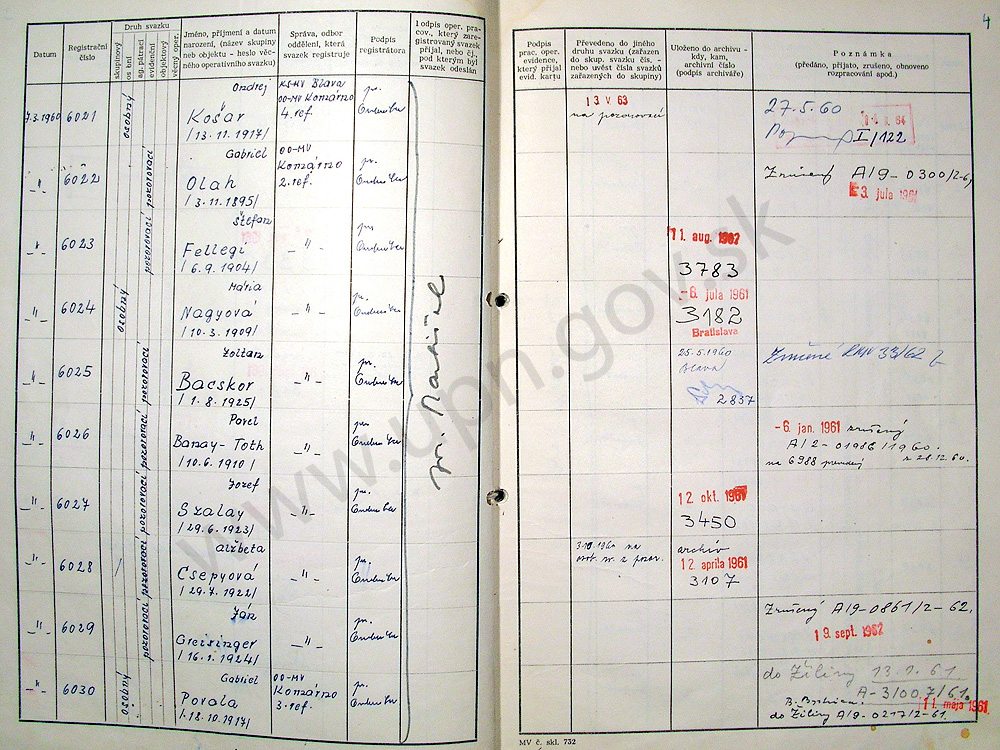 4
Druh svazku
Datum
Registrační číslo
skupinový
osobní
ag. pátrací
evidenční
objektový
věcný oper.
Jméno, příjmení a datum
narození, (název skupiny
neb objektu - heslo věc-
ného operativního svazku)
Správa, odbor
oddělení, která
svazek registruje
Podpis
registrátora
Podpis oper. pra-
cov., který zare-
gistrovaný svazek
přijal, nebo čj.,
pod kterým byl
svazek odeslán
7.3.1960 6021 osobný
Ondrej
Košar
/13.11.1917/
KS-MV Blava
OO-MV Komárno
4. ref.
-"- 6022 pozorovací
Gabriel
Olah
/3.11.1895/
OO-MV
Komárno
2. ref.
-"- 6023 pozorovací
Štefan
Fellegi
/6.9.1904/
-"-
-"- 6024 osobný
Mária
Nagyová
/10.3.1909/
-"-
-"- 6025 pozorovací
Zoltan
Bacskor
/1.8.1925/
-"-
-"- 6026 pozorovací
Pavel
Banay-Toth
/10.6.1910/
-"-
-"- 6027 pozorovací
Jozef
Szalay
/29.6.1923/
-"-
-"- 6028 pozorovací
Alžbeta
Csepyová
/29.7.1922/
-"-
-"- 6029 pozorovací
Ján
Greisinger
/16.1.1924/
-"-
-"- 6030 osobný
Gabriel
Povala
/18.10.1917/
OO-MV
Komárno
3. ref.
Podpis
prac. oper.
evidence,
který přijal
evid. kartu
Převedeno do jiného
druhu svazku (zařazen
do skup. svazku čís. -
nebo uvést čísla svazků
zařazených do skupiny)
Uloženo do archivu -
kdy, kam,
archivní číslo
(podpis archiváře)
Poznámka
(předáno, přijato, zrušeno, obnoveno
rozpracování apod.)
13 V 63
na pozorovací
27.5.60
I/122
Zrušený A/9-0300/2-61
3. jula 1961
11. aug. 1962
3783
-6. jula 1961
3182
Bratislava
25.5.1960
Blava
2837
33/62
-6. jan. 1961 zrušený
A/2-01986/1960.
na 6988 prevedený z 28.12.60.
12. okt. 1961
3450
3.10.1960 na
osob. sv. z pozor.
archív
12. apríla 1961
3107
Zrušený A/9-0861/2-62.
19. sept. 1962
do Žiliny 13.1.61.
A-3/007/61.
B. Bystrica
11. maja 1961
do Žiliny A/9-0217/2-61.
MV č. skl. 732
www.upn.gov.sk